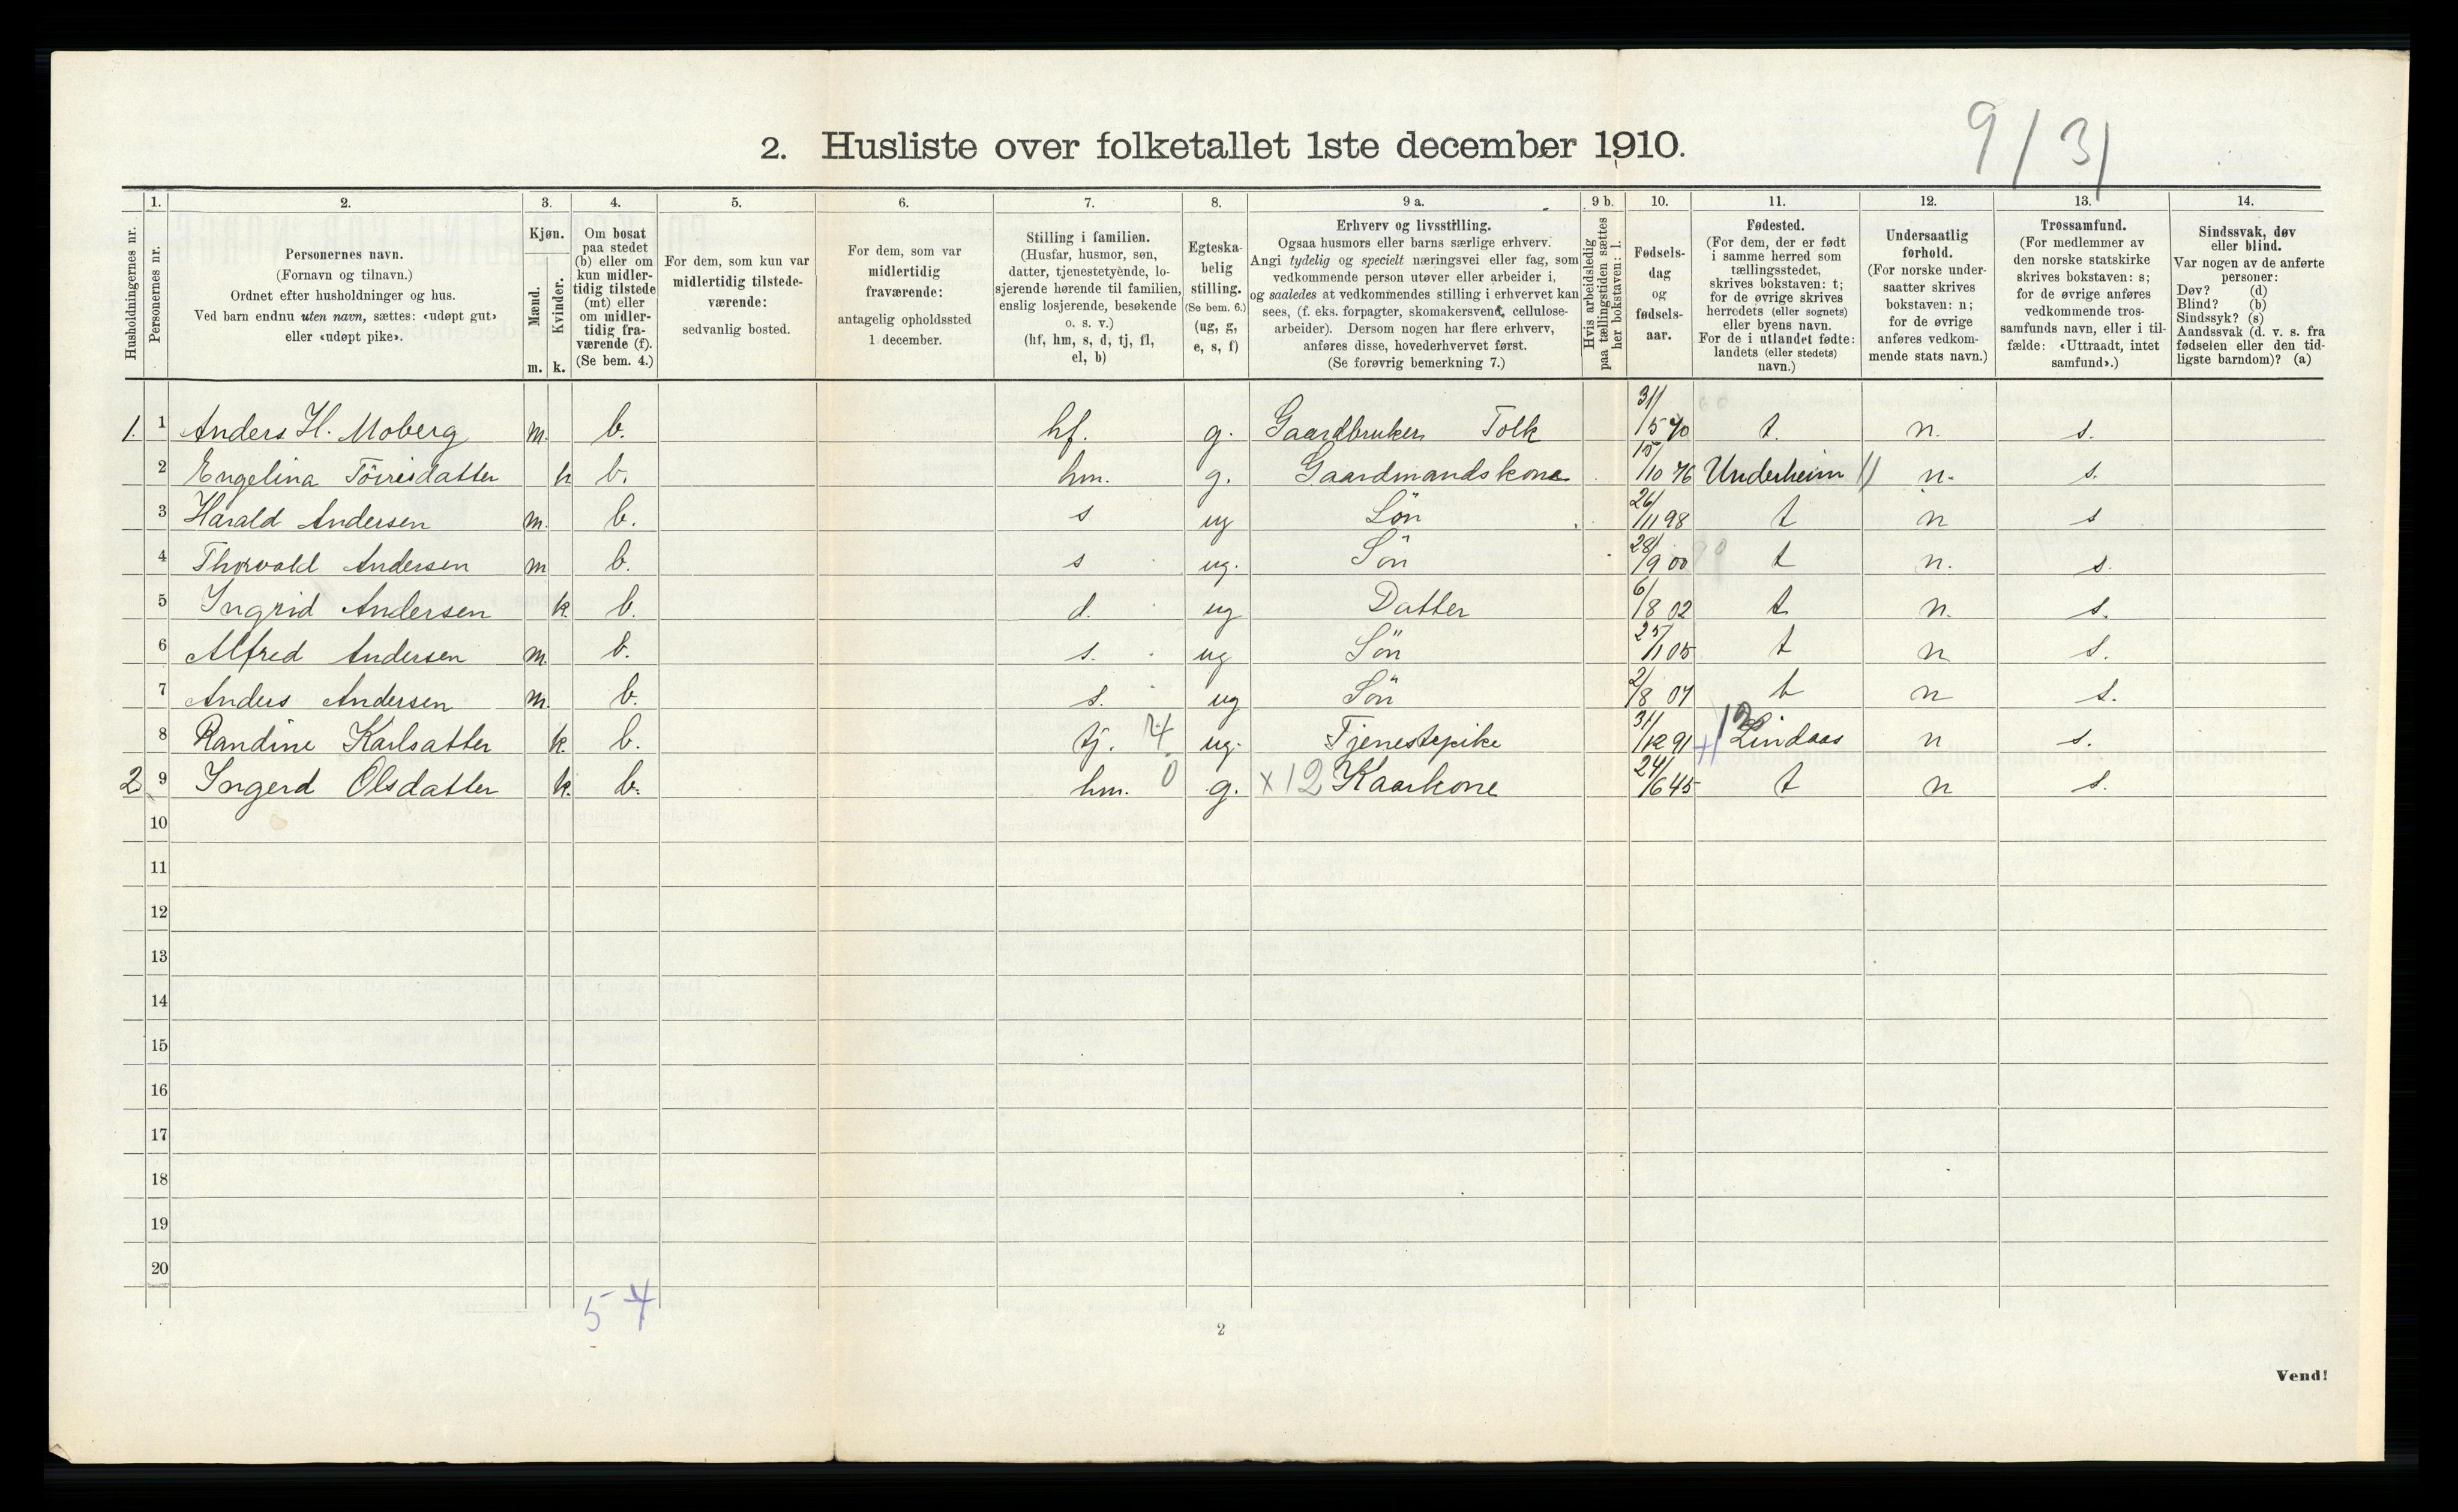 9/31
2. Husliste over folketallet 1ste december 1910.
Husholdningernes nr.
1. Personernes nr.
2. Personernes navn.
(Fornavn og tilnavn.)
Ordnet efter husholdninger og hus.
Ved barn endnu uten navn, sættes: «udøpt gut»
eller «udøpt pike».
3. Kjøn.
Mænd. m.
Kvinder. k.
4. Om bosat
paa stedet
(b) eller om
kun midler-
tidig tilstede
(mt) eller
om midler-
tidig fra-
værende (f).
(Se bem. 4.)
5. For dem, som kun var
midlertidig tilstede-
værende:
sedvanlig bosted.
6. For dem, som var
midlertidig
fraværende:
antagelig opholdssted
1 december.
7. Stilling i familien.
(Husfar, husmor, søn,
datter, tjenestetyende, lo-
sjerende hørende til familien,
enslig losjerende, besøkende
o. s. v.)
(hf, hm, s, d, tj, fl,
el, b)
8. Egteska-
belig
stilling.
(Se bem. 6.)
(ug, g,
e, s, f)
9 a. Erhverv og livsstilling.
Ogsaa husmors eller barns særlige erhverv.
Angi tydelig og specielt næringsvei eller fag, som
vedkommende person utøver eller arbeider i,
og saaledes at vedkommendes stilling i erhvervet kan
sees, (f. eks. forpagter, skomakersvend, cellulose-
arbeider). Dersom nogen har flere erhverv,
anføres disse, hovederhvervet først.
(Se forøvrig bemerkning 7.)
9 b. Hvis arbeidsledig
paa tællingstiden sættes
her bokstaven: l.
10. Fødsels-
dag
og
fødsels-
aar.
11. Fødested.
(For dem, der er født
i samme herred som
tællingsstedet,
skrives bokstaven: t;
for de øvrige skrives
herredets (eller sognets)
eller byens navn.
For de i utlandet fødte:
landets (eller stedets)
navn.)
12. Undersaatlig
forhold.
(For norske under-
saatter skrives
bokstaven: n;
for de øvrige
anføres vedkom-
mende stats navn.)
13. Trossamfund.
(For medlemmer av
den norske statskirke
skrives bokstaven: s;
for de øvrige anføres
vedkommende tros-
samfunds navn, eller i til-
fælde: «Uttraadt, intet
samfund».)
14. Sindssvak, døv
eller blind.
Var nogen av de anførte
personer:
Døv? (d)
Blind? (b)
Sindssyk? (s)
Aandssvak (d. v. s. fra
fødselen eller den tid-
ligste barndom)? (a)
1. 1 Anders H. Moberg m. b. hf. g. Gaardbruker Tolk 31/5 70 t. n. s.
2 Engelina Töiresdatter k b. hm. g. Gaardmandskone 15/10 76 Underheim n. s.
3 Harald Andersen m. b. s ug Sön 26/11 98 t n s
4 Thorvald Andersen m b. s ug. Sön 28/9 00 t n. s.
5 Ingrid Andersen k. b. d. ug Datter 6/8 02 t n. s.
6 Alfred Andersen m. b. s. ug Sön 25/1 05 t n s.
7 Anders Andersen m. b. s. ug Sön 2/8 07 t n s.
8 Randine Karlsatter k. b. tj. 4 ug. Tjenestepike 31/12 91 Lindaas n s.
2. 9 Ingerd Olsdatter k. b. hm. 0 g. x12 Kaarkone 24/6 45 t n s.
10
11
12
13
14
15
16
17
18
19
20
5 4
2
Vend!